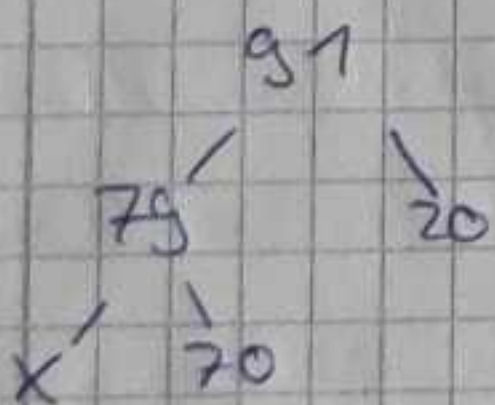 91
79 20
x 70